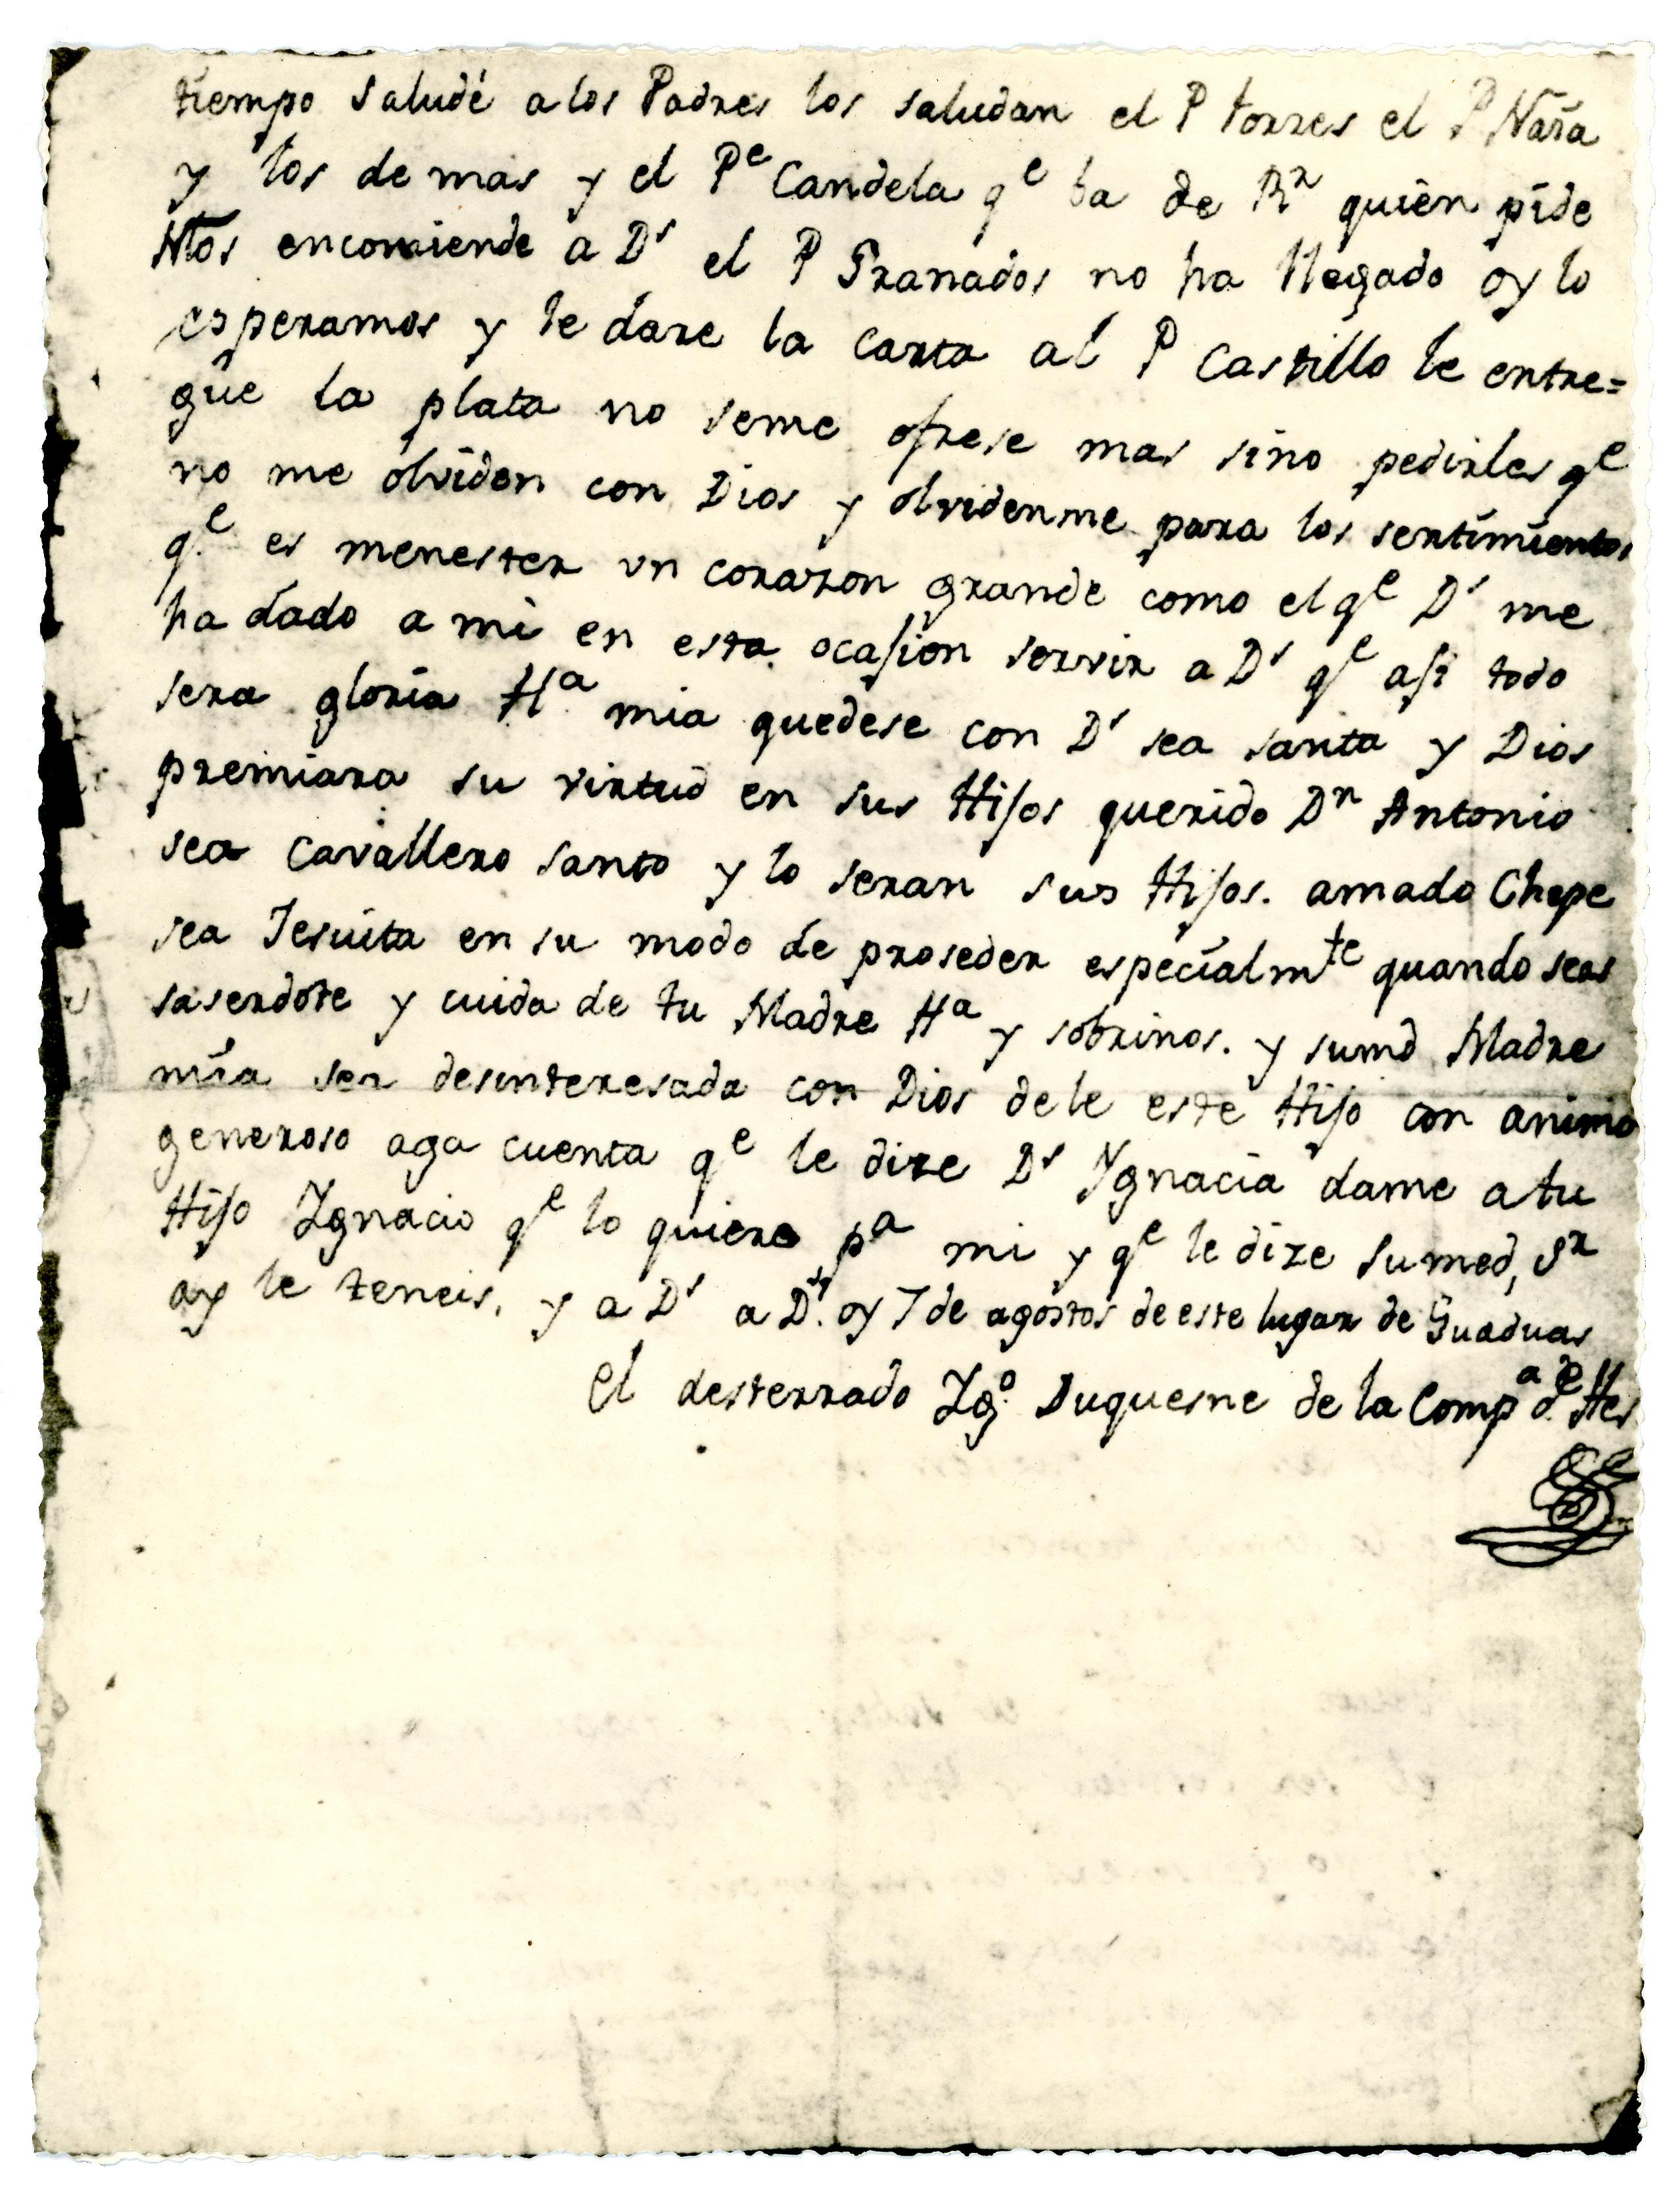 tiempo saludé a los Padres los saludan el P torres el P Naria
y los de mas y el Pe Candela qe ba de Rr quien pide
encomiende a Ds el P Granados no ha llegado oy lo
esperamos y le dare la carta al P Castillo le entre=
gue la plata no seme ofrese mas sino pedirles qe
no me olviden con Dios y olvidenme para los sentimientos
qe es menester un corazon grande como el qe Ds me
ha dado a mi en esta ocasion servir a Ds qe asi todo
sera gloria Ha mia quedese con Ds sea santa y Dios
premiara su virtud en sus Hijos querido Dn Antonio
sea Cavallero santo y lo seran sus Hijos. amado Chepe
sea Jesuita en su modo de proseder especialmte quando seas
saserdote y cuida de tu Madre Ha y sobrinos. y sumd Madre
mia ser desinteresada con Dios dele este Hijo con animo
generoso aga cuenta qe le dize Ds Ygnacia dame a tu
Hijo Ignacio qe lo quiero pa mi y qe le dize sumed, Sr
ay le teneis. y a Ds a Ds. oy 7 de agostos de este lugar de Guaduas
el desterrado Igo. Duquesne de la Compa de